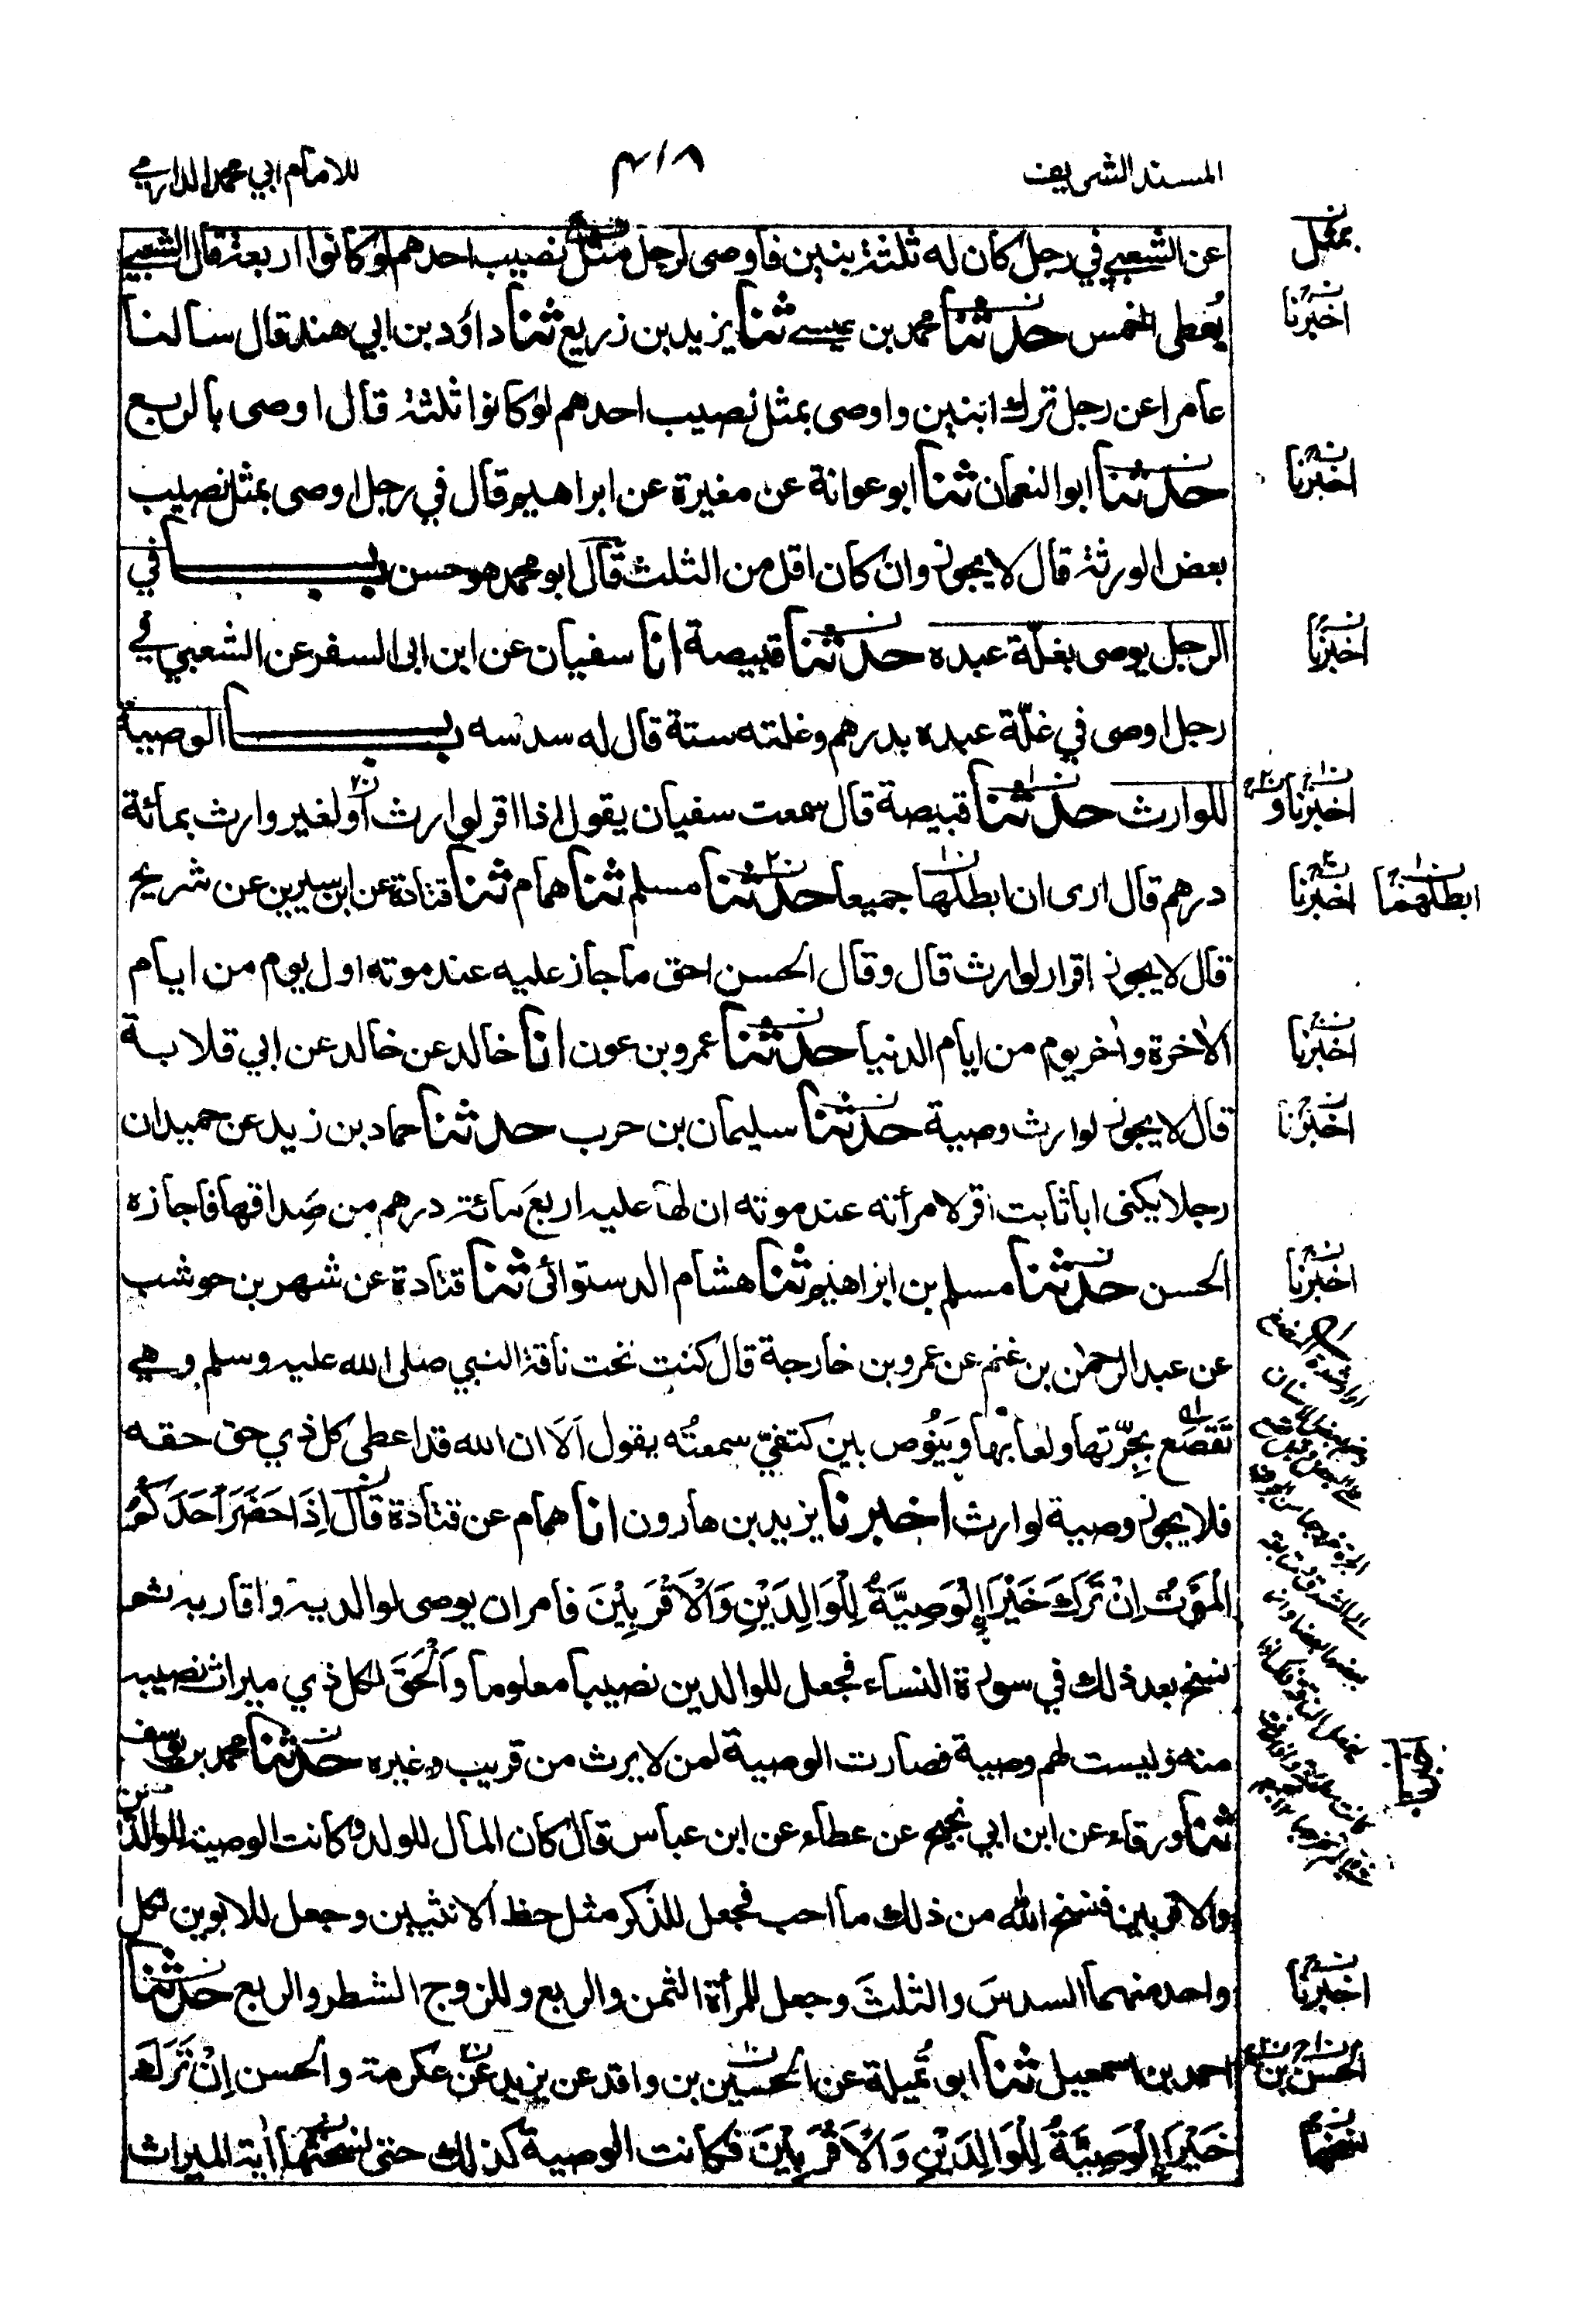 المسند الشريف
٤١٨
للامام ابي محمد الدارمي
عن الشعبي في رجل كان له ثلثة بنين فاوصى لرجل مثل نصيب احدهم لو كانوا اربعة قال الشعبي
يُعطى الخمس حدثنا محمد بن عيسى ثنا يزيد بن زريع ثنا داؤد بن ابي هند قال سالنا
عامرا عن رجل ترك ابنين واوصى بمثل نصيب احدهم لو كانوا ثلثة قال اوصى بالربع
حدثنا ابو النعمان ثنا ابو عوانة عن مغيرة عن ابراهيم قال في رجل اوصى بمثل نصيب
بعض الورثة قال لا يجوز وان كان اقل من الثلث قال ابو محمد هو حسن باب في
الرجل يوصى بغلّة عبده حدثنا قبيصة انا سفيان عن ابن ابى السفر عن الشعبي في
رجل اوصى في غلّة عبده بدرهم وغلته ستة قال له سدسه باب الوصية
للوارث حدثنا قبيصة قال سمعت سفيان يقول اذا اقر لوارث او لغير وارث بمائة
درهم قال ارى ان ابطلها جميعا حدثنا مسلم ثنا همام ثنا قتادة عن ابن سيرين عن شريح
قال لا يجوز اقرار لوارث قال وقال الحسن احق ما جاز عليه عند موته اول يوم من ايام
الاخرة واٰخر يوم من ايام الدنيا حدثنا عمرو بن عون انا خالد عن خالد عن ابي قلابة
قال لا يجوز لوارث وصية حدثنا سليمان بن حرب حدثنا حماد بن زيد عن حميد ان
رجلا يكنى ابا ثابت اقر لامرأته عند موته ان لها عليه اربع مائة درهم من صَداقها فاجازه
الحسن حدثنا مسلم بن ابراهيم ثنا هشام الدستوائى ثنا قتادة عن شهر بن حوشب
عن عبد الرحمٰن بن غنم عن عمرو بن خارجة قال كنت تحت ناقة النبي صلى الله عليه وسلم وهي
تَقصَع بِجِرّتها ولعابها ويَنُوص بين كتفيّ سمعتُه يقول اَلَا ان الله قد اعطى كل ذي حق حقه
فلا يجوز وصية لوارث اخبرنا يزيد بن هارون انا همام عن قتادة قال اِذَا حَضَرَ اَحَدَكُمُ
الْمَوْتُ اِنْ تَرَكَ خَيْرَا اِلْوَصِيَّةُ لِلْوَالِدَيْنِ وَالْاَقْرَبِيْنَ فامر ان يوصى لوالديه واقاربه ثم
نسخ بعد ذلك في سورة النساء فجعل للوالدين نصيبا معلوما واَلْحَقَ لكل ذي ميراث نصيبه
منه وليست لهم وصية فصارت الوصية لمن لا يرث من قريب وغيره حدثنا محمد بن يوسف
ثنا ورقاء عن ابن ابي نجيح عن عطاء عن ابن عباس قال كان المال للولد وكانت الوصية للوالدين
والاقربين فنسخ الله من ذلك ما احب فجعل للذكر مثل حظ الانثيين وجعل للابوين لكل
واحد منهما السدسَ والثلثَ وجعل للمرأة الثمن والربع وللزوج الشطر والربع حدثنا
احمد بن اسمعيل ثنا ابو تُميلة عن الحسين بن واقد عن يزيد عن عكرمة والحسن اِنْ تَرَكَ
خَيْرَا اِلْوَصِيَّةُ لِلْوَالِدَيْنِ وَالْاَقْرَبِيْنَ فكانت الوصية كذلك حتى نسختها اٰية الميراث
بمثل
اخبرنا
اخبرنا
اخبرنا
اخبرنا و
اخبرنا
ابطلهما
اخبرنا
اخبرنا
اخبرنا
اخبرنا
الحسن بن